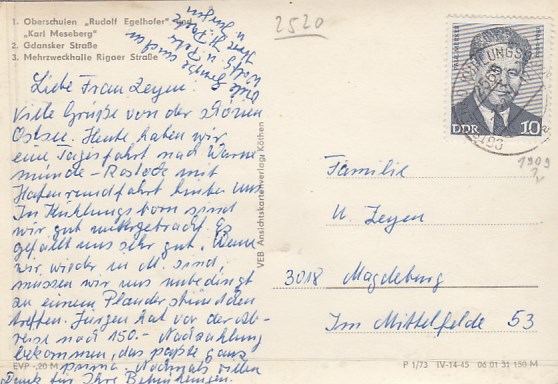 1. Oberschulen „Rudolf Egelhofer" und
„Karl Meseberg"
2. Gdansker Straße
3. Mehrzweckhalle Rigaer Straße
2520
Liebe Frau Zeyen!
Viele Grüße von der schönen
Ostsee. Heute haben wir
eine Tagesfahrt nach Warne
münde - Rostock mit
Hafenrundfahrt hinter uns.
In Kühlungsborn sind
wir gut untergebracht. Es
gefällt uns sehr gut. Wenn
wir wieder in M. sind,
müssen wir uns unbedingt
zu einem Plauderstündchen
treffen. Jürgen hat vor der Ab-
reise noch 150.- Nachzahlung
bekommen, das paßte ganz
prima. Nochmals vielen
Dank für Ihre Bemühungen.
Viele
u.
VEB Ansichtskartenverlag Köthen
DDR 10
1909
Familie
U. Zeyen
3018 Magdeburg
Im Mittelfelde 53
EVP -,20 M
P 1/73 IV-14-45 06 01 31 150 M